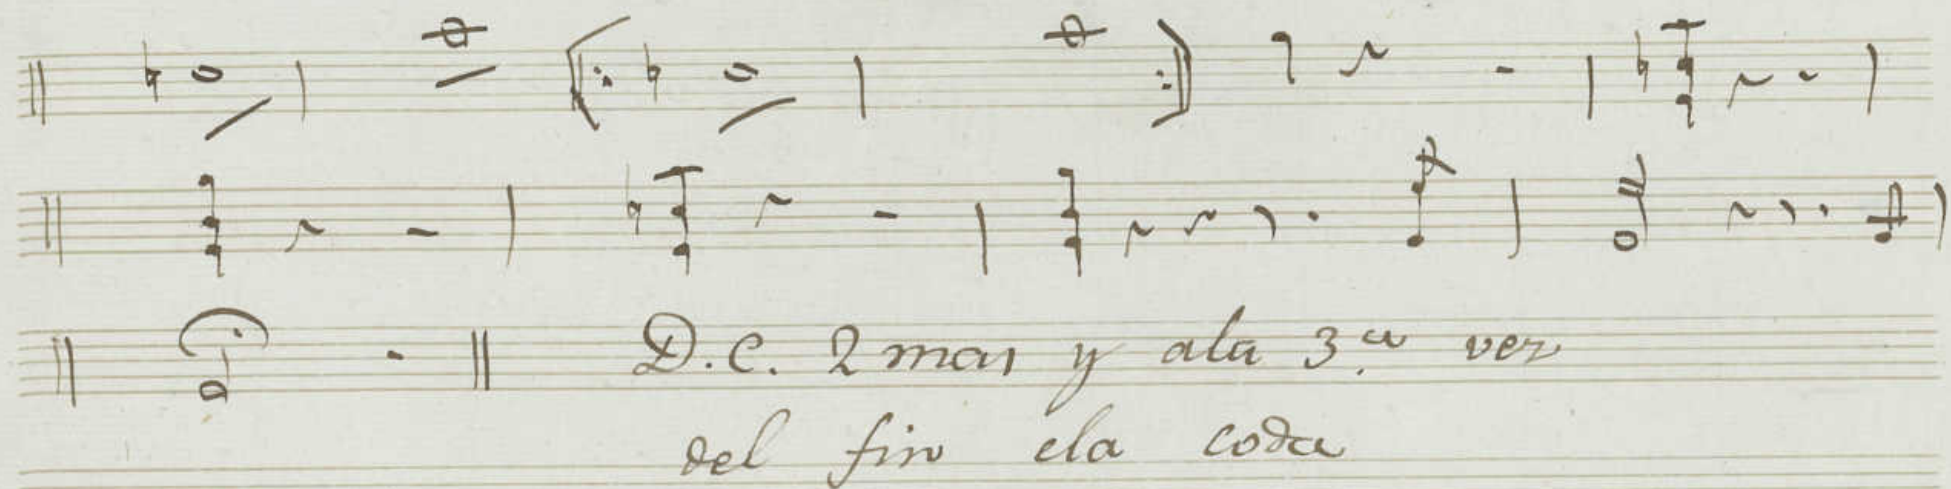 D.C. 2 mas y ala 3.ª vez
del fin ala coda